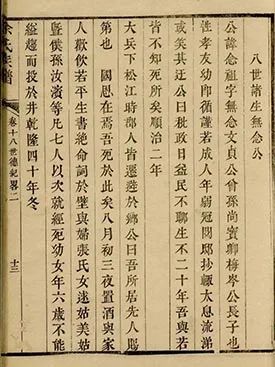 八世諸生無念公
公諱念祖字無念文貞公曾孫尚寶卿梅岑公長子也
性孝友幼即循謹若成人年弱冠閱邸抄輒太息流涕
或笑其迂公曰秕政日益民不聊生不二十年吾與若
皆不知死所矣順治二年
大兵下松江時郡人皆遷避於鄉公曰吾所居先人賜
第也 國恩在焉吾死於此矣八月初三夜置酒與家
人歡飲若平生書絕命詞於壁與婦張氏女遂姑美姑
暨僕孫汝濱等凡七人以次就經死幼女年六歲不能
縊趨而投於井乾隆四十年冬
卷十八世德紀畧二
十三